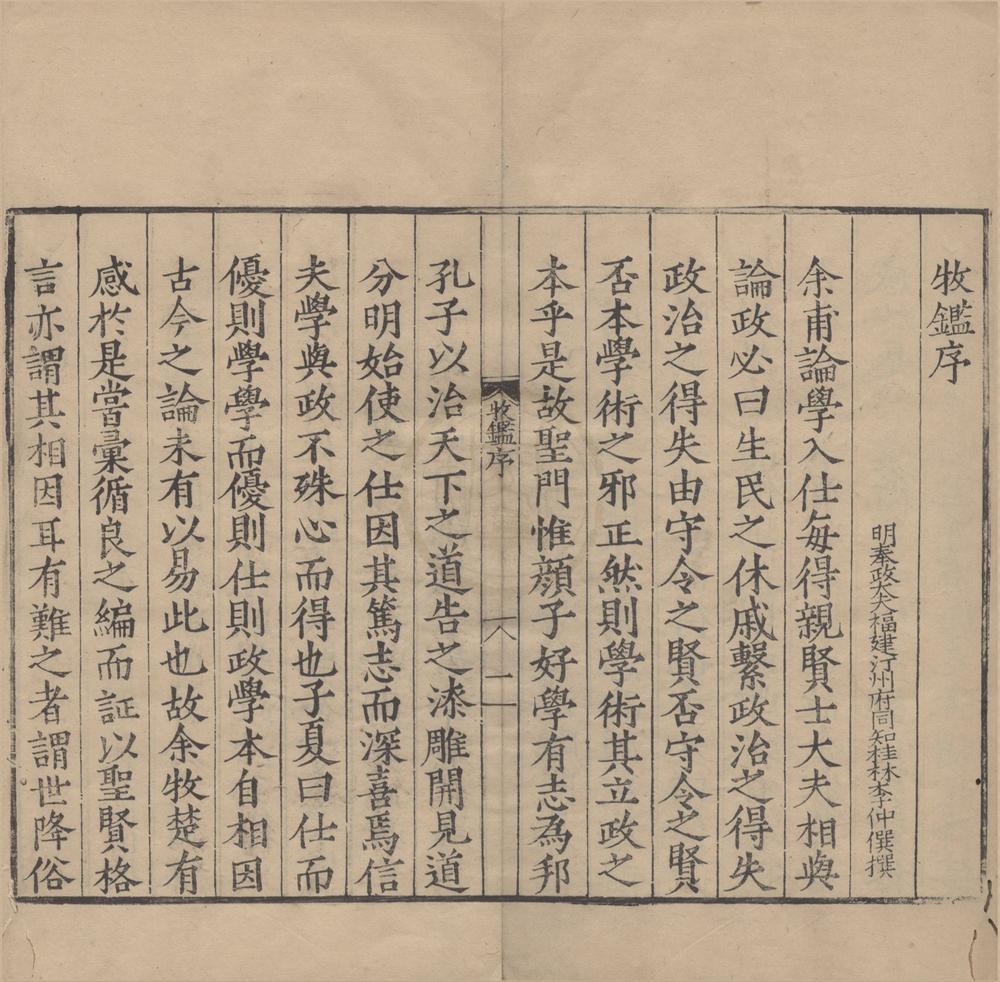 牧鑑序
明奉政大夫福建汀州府同知桂林李仲僎撰
余甫論學入仕每得親賢士大夫相與
論政必曰生民之休戚繫政治之得失
政治之得失由守令之賢否守令之賢
否本學術之邪正然則學術其立政之
本乎是故聖門惟顔子好學有志為邦
牧鑑序
一
孔子以治天下之道告之漆雕開見道
分明始使之仕因其篤志而深喜焉信
夫學與政不殊心而得也子夏曰仕而
優則學學而優則仕則政學本自相因
古今之論未有以易此也故余牧楚有
感於是嘗彙循良之編而証以聖賢格
言亦謂其相因耳有難之者謂世降俗